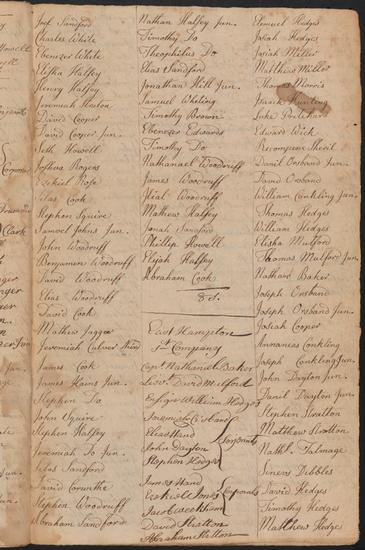 Joel Sandford
Charles White
Ebenezer White
Elisha Halsey
Henry Halsey
Jeremiah
David Cooper
David Cooper Jun.
Seth Howell
Joshua Rogers
Ezekiel Rose
Silas Cook
Stephen Squire
Samuel Johns Jun.
John Woodruff
Benjamin Woodruff
David Woodruff
Elias Woodruff
David Cook
Mathew Jagger
Jeremiah Culver
James Cook
James Hains Jun.
Stephen Do
John Squire
Stephen Halsey
Jeremiah Do Jun.
Silas Sandford
David Corwithe
Stephen Woodruff
Abraham Sandford
Nathan Halsey Jun.
Timothy Do
Theophilus Do
Elias Sandford
Jonathan Hill Jun.
Samuel Whiting
Timothy Brown
Ebenezer Edwards
Timothy Do
Nathanael Woodruff
James Woodruff
Woodruff
Mathew Halsey
Jonah Sandford
Phillip Howell
Elijah Halsey
Abraham Cook
East Hampton
1st Company
Capt Nathaniel Baker
Lieu. David Mulford
William Hedges
Jeremiah
Eleas Hand
John Dayton
Stephen Hedges
Serjeants
James Hand
Ezekiel Jones
Jacob
Corporals
David Stratton
Abraham
Lemuel Hedges
Josiah Hedges
Josiah Miller
Matthew Miller
Thomas Morris
Isaack
Luke
Edward Wick
Recompence Sheril
Daniel Orsband Jun.
David Orsband
William Conkling Jun.
Thomas Hedges
William Hedges
Elisha Mulford
Thomas Mulford Jun.
Nathan Baker
Joseph Orsband
Joseph Orsband Jun.
Josiah Coper
Annanias Conkling
Joseph Conkling Jun.
John Dayton Jun.
Daniel Dayton Jun.
Stephen Stratton
Matthew Stratton
Nathl. Talmage
Sineus Dibbles
David Hedges
Timothy Hedges
Matthew Hedges